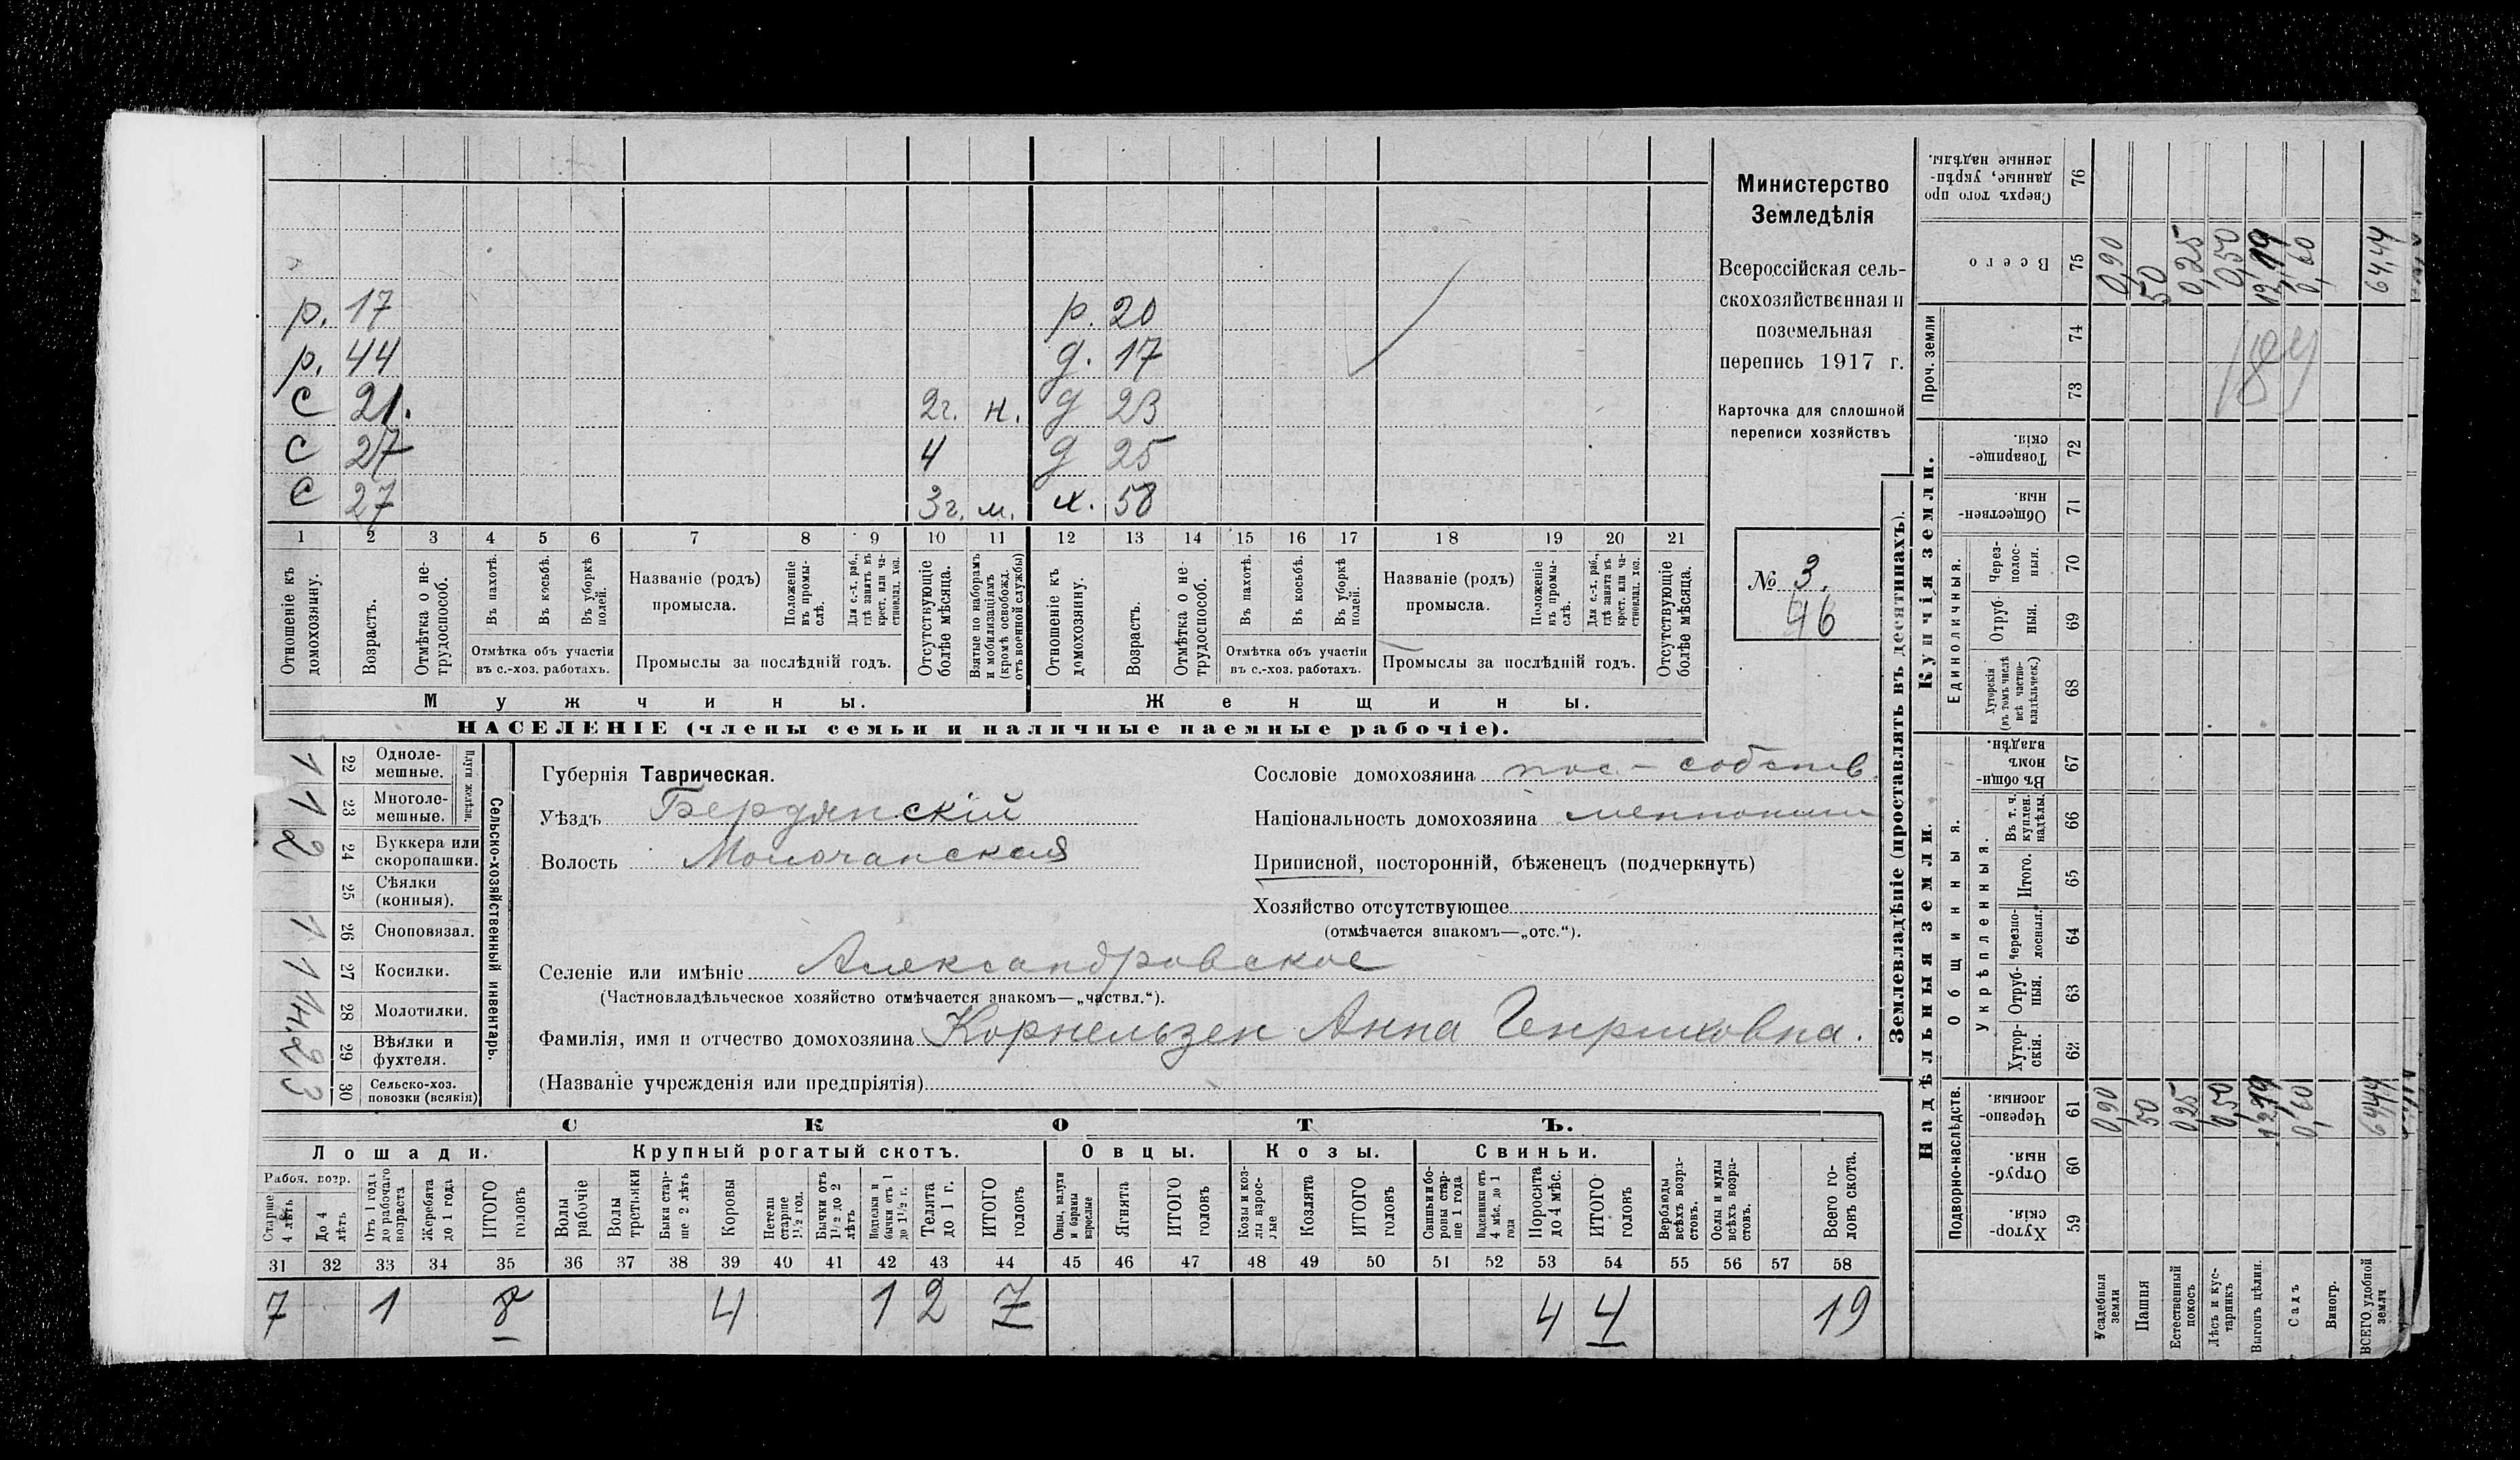 р. 17 р. 20
р. 44 д. 17
С 21. 2г. н. д 23
С 27 4 д 25
С 27 3г. м. х. 58
1 2 3 4 5 6 7 8 9 10 11 12 13 14 15 16 17 18 19 20 21
Отношеніе къ домохозяину.
Возрастъ.
Отмѣтка о не-трудоспособ.
Въ пахотѣ.
Въ косьбѣ.
Въ уборкѣ полей.
Отмѣтка объ участіи въ с.-хоз. работахъ.
Названіе (родъ) промысла.
Положеніе въ промы-слѣ.
Для с.-х. раб., гдѣ занятъ въ крест. или ча-стновлад. хоз.
Промыслы за послѣдній годъ.
Отсутствующіе болѣе мѣсяца.
Взятые по наборамъ и мобилизаціямъ (кромѣ освобожд. отъ военной службы)
Отношеніе къ домохозяину.
Возрастъ.
Отмѣтка о не-трудоспособ.
Въ пахотѣ.
Въ косьбѣ.
Въ уборкѣ полей.
Отмѣтка объ участіи въ с.-хоз. работахъ.
Названіе (родъ) промысла.
Положеніе въ промы-слѣ.
Для с.-х. раб., гдѣ занята въ крест. или ча-стновлад. хоз.
Промыслы за послѣдній годъ.
Отсутствующіе болѣе мѣсяца.
Мужчины. Женщины.
НАСЕЛЕНІЕ (члены семьи и наличные наемные рабочіе).
Министерство
Земледѣлія
Всероссійская сель-
скохозяйственная и
поземельная
перепись 1917 г.
Карточка для сплошной
переписи хозяйствъ
№ 3.
46
Сельско-хозяйственный инвентарь.
Плуги желѣзн.
22 Одноле-мешные. 1
23 Многоле-мешные. 1
24 Буккера или скоропашки. 2
25 Сѣялки (конныя).
26 Сноповязал. 1
27 Косилки. 1
28 Молотилки. 1
29 Вѣялки и фухтеля. 2
30 Сельско-хоз. повозки (всякія) 3
Губернія Таврическая.
Уѣздъ Бердянскій
Волость Молочанская
Сословіе домохозяина пос.- собств.
Національность домохозяина
Приписной, посторонній, бѣженецъ (подчеркнуть)
Хозяйство отсутствующее
(отмѣчается знакомъ—„отс.“).
Селеніе или имѣніе Александровское
(Частновладѣльческое хозяйство отмѣчается знакомъ—„частвл.“).
Фамилія, имя и отчество домохозяина Корнельзен Анна Генриховна.
(Названіе учрежденія или предпріятія)
СКОТЪ.
Лошади. Крупный рогатый скотъ. Овцы. Козы. Свиньи.
Рабоч. возр.
Старше 4 лѣтъ
До 4 лѣтъ
Отъ 1 года до рабочаго возраста
Жеребята до 1 года
ИТОГО головъ
Волы рабочіе
Волы третьяки
Быки стар-ше 2 лѣтъ
Коровы
Нетели старше 1½ год.
Бычки отъ 1½ до 2 лѣтъ
Подтелки и бычки отъ 1 до 1½ г.
Телята до 1 г.
ИТОГО головъ
Овцы, валухи и бараны взрослые
Ягнята
ИТОГО головъ
Козы и коз-лы взрос-лые
Козлята
ИТОГО головъ
Свиньи и бо-ровы стар-ше 1 года
Подсвинки отъ 4 мѣс. до 1 года
Поросята до 4 мѣс.
ИТОГО головъ
Верблюды всѣхъ возра-стовъ.
Ослы и мулы всѣхъ возра-стовъ.
Всего го-ловъ скота.
31 32 33 34 35 36 37 38 39 40 41 42 43 44 45 46 47 48 49 50 51 52 53 54 55 56 57 58
7 1 8 4 1 2 7 4 4 19
Землевладѣніе (проставлять въ десятинахъ).
Надѣльныя земли. Купчія земли. Проч. земли
Подворно-наслѣдств. Общинныя. Укрѣпленныя. Единоличныя.
59 Хутор-скія.
60 Отруб-ныя.
61 Черезпо-лосныя.
62 Хутор-скія.
63 Отруб-ныя.
64 Черезпо-лосныя.
65 Итого.
66 Въ т. ч. куплен. надѣлы.
67 Въ общи-номъ владѣн.
68 Хуторскія (въ томъ числѣ всѣ частно-владѣльческ.)
69 Отруб-ныя.
70 Через-полос-ныя.
71 Обществен-ныя.
72 Товарище-скія.
73
74
75 Всего
76 Сверхъ того про-данные, укрѣп-ленные надѣлы.
Усадебныя земли 0,90 0,90
Пашня 50 50
Естественный покосъ 0,25 0,25
Лѣсъ и кус-тарникъ 0,50 0,50
Выгонъ цѣлин. 12,19 12,19
Садъ 0,60 0,60
Виногр.
ВСЕГО удобной земли 64,44 64,44
184